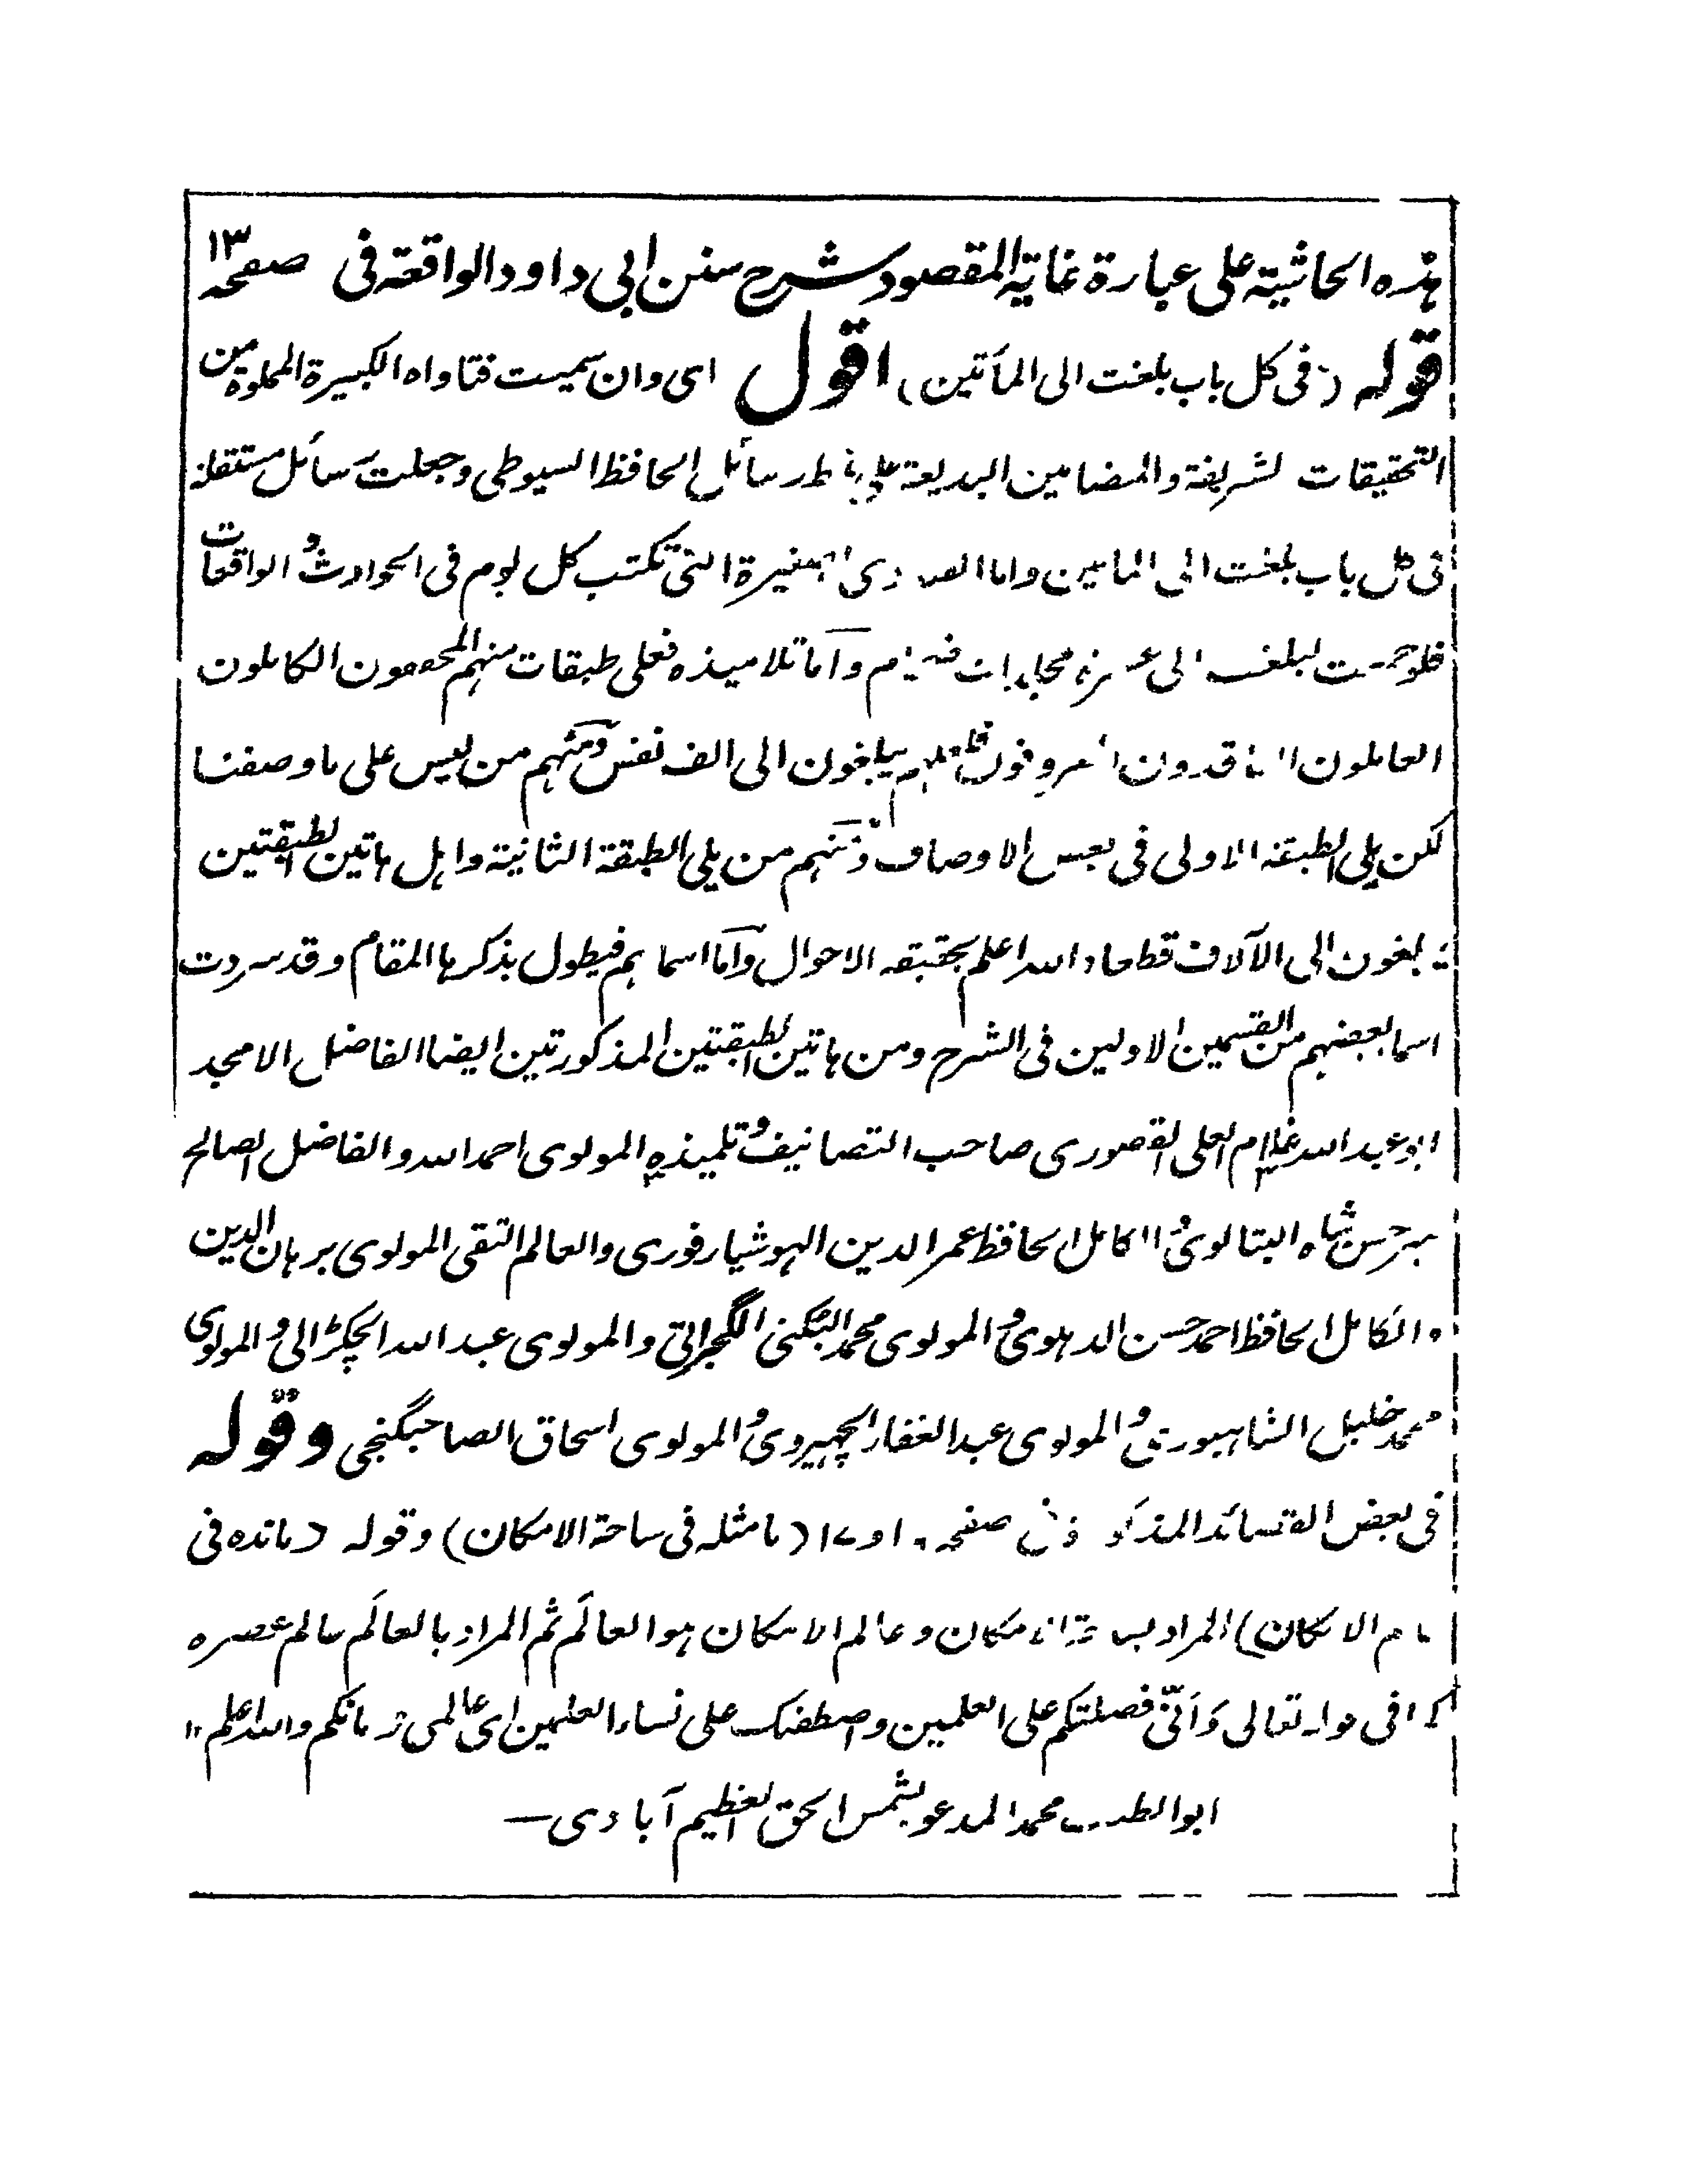 هذه الحاشية على عبارة غاية المقصود شرح سنن ابي داود الواقعة في صفحه ١٣
قوله (في كل باب بلغت الى المأتين) اقول اى وان سميت فتاواه الكبيرة المملوة من
التحقيقات الشريفة والمضامين البديعة على رسائل الحافظ السيوطى وجعلت رسائل مستقلة
فى كل باب بلغت الى الماتين واما الفتاوى الصغيرة التى تكتب كل يوم فى الحوادث و الواقعات
فلو جمعت لبلغت الى مجلدات ضخام واما تلاميذه فعلى طبقات منهم المحققون الكاملون
العاملون الناقدون المعروفون فلعلهم يبلغون الى الف نفس ومنهم من ليس على ما وصفنا
لكن يلى الطبقة الاولى فى بعض الاوصاف ومنهم من يلى الطبقة الثانية واهل هاتين الطبقتين
يبلغون الى الآلاف قطعا والله اعلم بحقيقة الاحوال واما اسماءهم فيطول بذكرها المقام وقد سردت
اسما بعضهم من القسمين الاولين فى الشرح ومن هاتين الطبقتين المذكورتين ايضا الفاضل الامجد
ابو عبد الله غلام العلى القصورى صاحب التصانيف و تلميذه المولوى احمد الله والفاضل الصالح
مير حسن شاه البتالوى و الكامل الحافظ عمر الدين الهوشيارفورى والعالم التقى المولوى برهان الدين
و الكامل الحافظ احمد حسن الدهلوى و المولوى محمد الگجراتى والمولوى عبد الله الچكڑالى و المولوى
محمد خليل الشاهپورى و المولوى عبد الغفار الچهپروى و المولوى اسحاق الصاحبگنجى وقوله
فى بعض القصائد المذكورة فى صفحه ١٠ و ١٧ (ما مثله فى ساحة الامكان) وقوله (ما نده فى
عالم الامكان) المراد بساحة الامكان وعالم الامكان هو العالَم ثم المراد بالعالَم عالم عصره
كما فى قوله تعالى وَاَنّى فضلتكم على العلمين واصطفىك على نساء العلمين اى عالمى زمانكم والله اعلم ١٢
ابو الطيب محمد المدعو بشمس الحق العظيم آبادى —